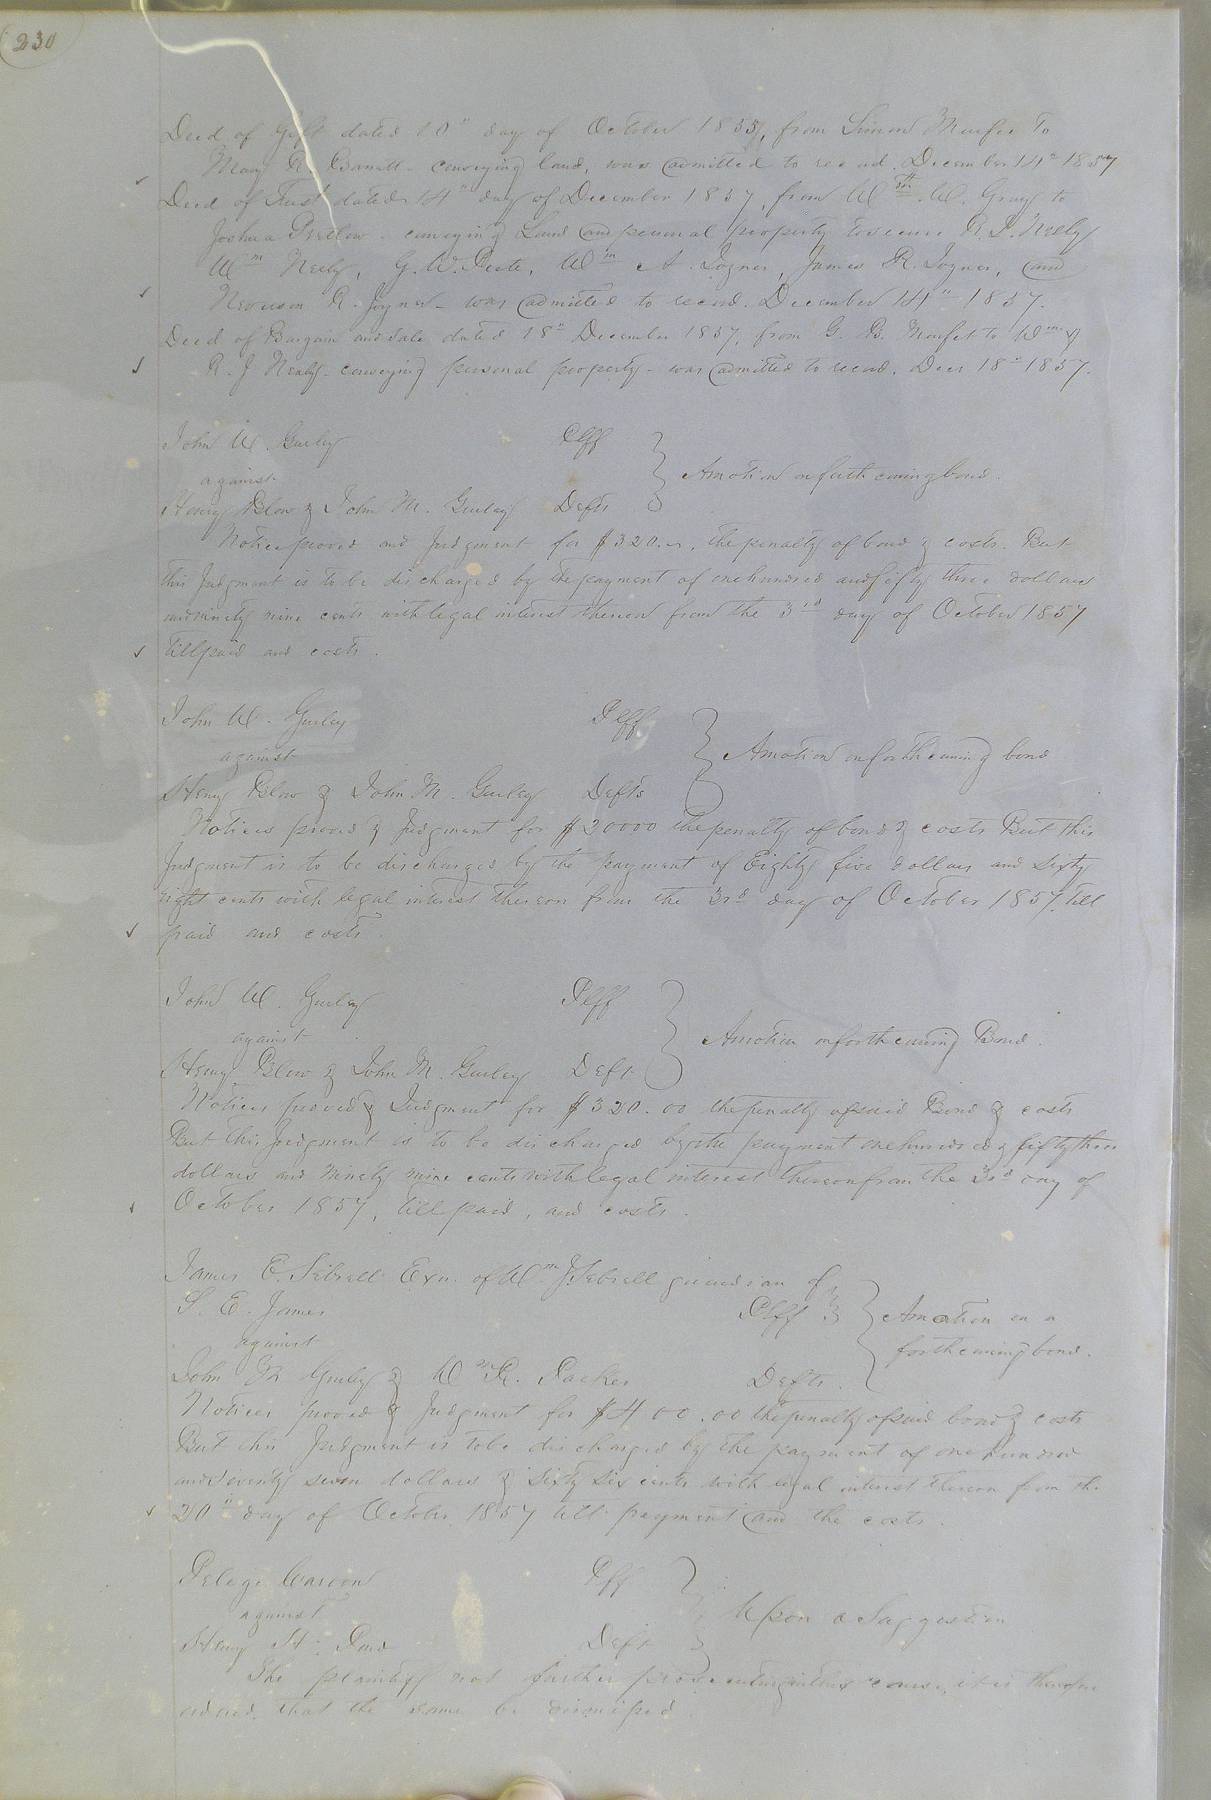 230
Deed of Gift dated 10" day of October 1857, from Simon Murfee To
Mary R. Barrett conveying land, was admitted to record December 14" 1857
Deed of Trust dated 14" day of December 1857, from Wm. W. Gray to
Joshua Pretlow - conveying Land and personal property to secure R. J. Neely
Wm Neely, G. W. Peete, Wm A. Joyner, James R. Joyner, and
Newsom R. Joyner - was admitted to record. December 14" 1857.
Deed of Bargain and sale dated 18" December 1857, from G. B. Murfee to Wm &
R. J Neely - conveying personal property - was admitted to record. Decr 18" 1857.
John W. Gurley Plff
against
A motion on forth coming bond.
Henry Blow & John M. Gurley Defts
Notice proved and Judgment for $320. the penalty of bond & costs. But
this Judgment is to be discharged by the payment of one hundred and fifty three dollars
and ninety nine cents with legal interest thereon from the 3rd day of October 1857
till paid and costs.
John W. Gurley Plff
against
A motion on forth coming bond
Henry Blow & John M. Gurley Defts
Notices proved & Judgment for $20000 the penalty of bond & costs But this
Judgment is to be discharged by the payment of Eighty five dollars and sixty
eight cents with legal interest thereon from the 3rd day of October 1857, till
paid and costs.
John W. Gurley Plff
against
A motion on forth coming Bond.
Henry Blow & John M. Gurley Deft
Notices proved & Judgment for $320.00 the penalty of said Bond & costs
But this Judgment is to be discharged by the payment one hundred & fifty three
dollars and ninety nine cents with legal interest thereon from the 3rd day of
October 1857, till paid, and costs.
James E. Sebrell Exr. of Wm J. Sebrell guardian of
S. E. James Plff
A motion on a
against
forthcoming bond.
John M Gurley & Wm R. Parker Defts.
Notices proved & Judgment for $400.00 the penalty of said bond & costs
But this Judgment is to be discharged by the payment of one hundred
and seventy seven dollars & sixty six cents with legal interest thereon from the
20" day of October 1857 till payment and the costs.
Pelege Carson Plff
against
Upon a Suggestion
Henry H. Deft
The plaintiff not further prosecuting in this cause, it is therefore
ordered that the same be dismissed.